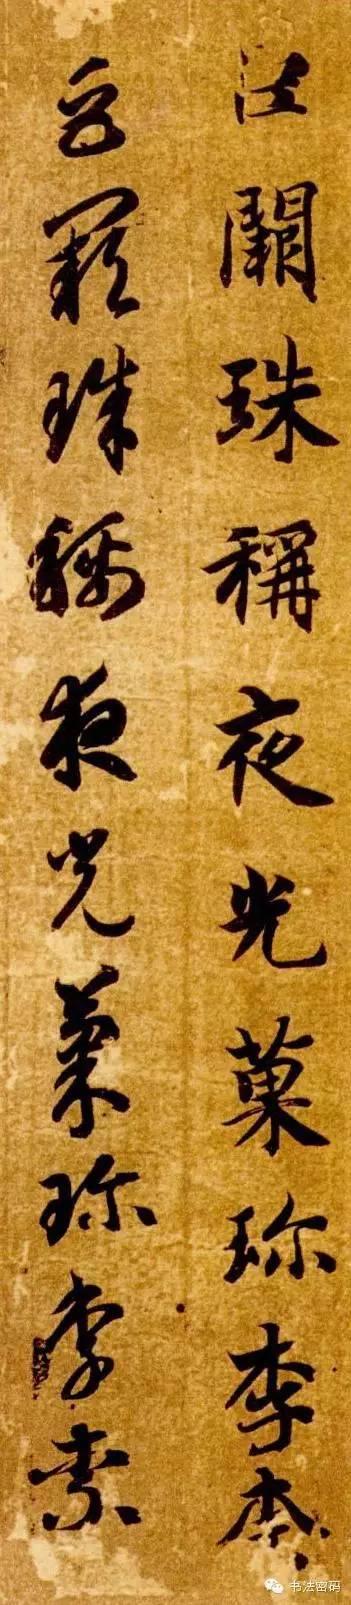 巨闕珠稱夜光菓珍李柰
巨闕珠稱夜光菓珍李柰
书法密码